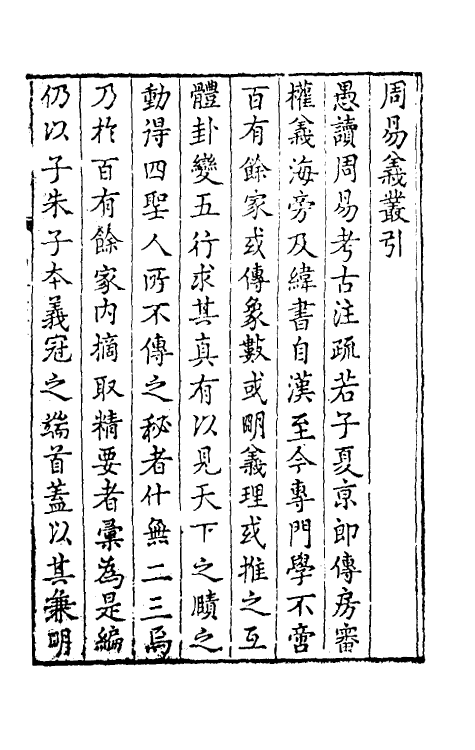 周易義叢引
愚讀周易考古注疏若子夏京郎傳房審
權義海旁及緯書自漢至今專門學不啻
百有餘家或傳象數或明義理或推之互
體卦變五行求其真有以見天下之賾之
動得四聖人所不傳之秘者什無二三焉
乃於百有餘家内摘取精要者彙為是編
仍以子朱子本義冠之端首蓋以其兼明